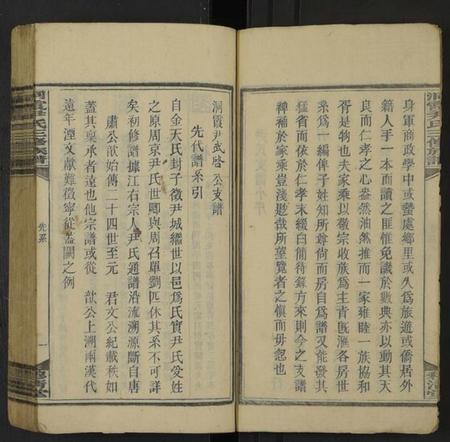 身軍商政學中或蟄處鄉里或久爲旅遊或僑居外
籍人手一本而誦之匪惟免譏於數典亦以動其天
良而仁孝之心盎然油然推而一家雍睦一族協和
胥是物也夫家乘以敬宗收族爲主旨匯各房世
系爲一編俾子姓知所尊尚而房自爲譜又能澄其
猛省而依於仁孝末綴白簡待錄方來則今之支譜
裨補於家乘豈淺尠哉所望覽者之慎而毋忽也
洞霞尹氏三修族譜
洞霞尹武啓公支譜
先代譜系引
自金天氏封子徵尹城繼世以邑爲氏實尹氏受姓
之原周京尹氏世卿與周召單劉匹休其系不可詳
矣初修譜據江右宗人尹氏通譜沿流溯源斷自唐
肅公欽始傳二十四世至元 君文公紀載秩如
蓋其稟承者遠也他宗譜或從 歆公上溯兩漢代
遠年湮文獻難徵寧從蓋闕之例
洞霞尹氏三修族譜
先系
一